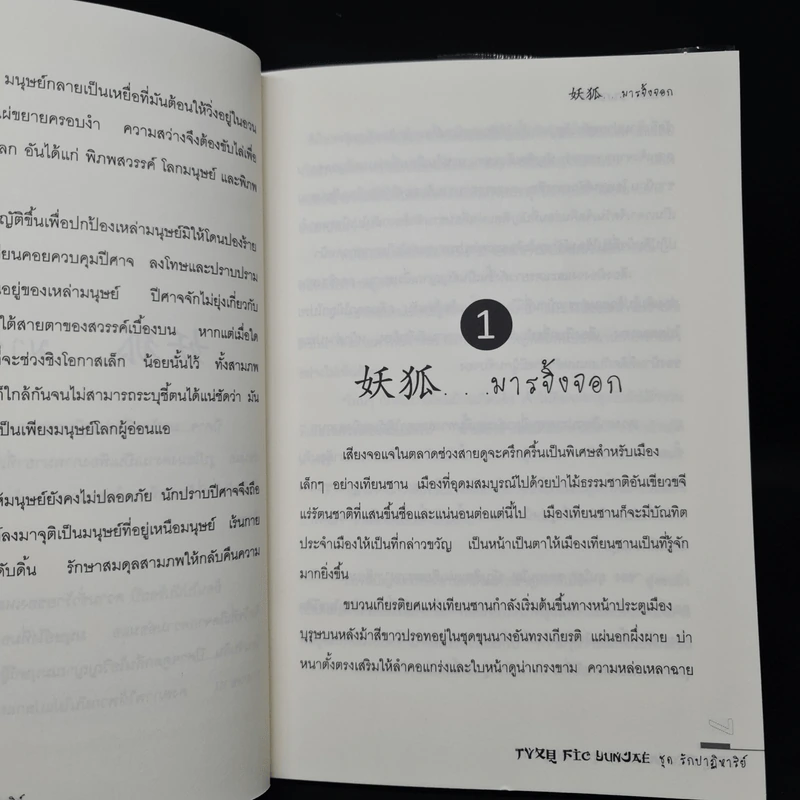 มนุษย์กลายเป็นเหยื่อที่มันต้อนให้วิ่งอยู่ในอวน
แผ่ขยายครอบงำ ความสว่างจึงต้องขับไล่เพื่อ
ลก อันได้แก่ พิภพสวรรค์ โลกมนุษย์ และพิภพ
ญัติขึ้นเพื่อปกป้องเหล่ามนุษย์มิให้โดนปองร้าย
ยนคอยควบคุมปีศาจ ลงโทษและปราบปราม
นอยู่ของเหล่ามนุษย์ ปีศาจจักไม่ยุ่งเกี่ยวกับ
ใต้สายตาของสวรรค์เบื้องบน หากแต่เมื่อใด
ที่จะช่วงชิงโอกาสเล็ก น้อยนั้นไว้ ทั้งสามภพ
ก็ใกล้กันจนไม่สามารถระบุชี้ตนได้แน่ชัดว่า มัน
เป็นเพียงมนุษย์โลกผู้อ่อนแอ
ห้มนุษย์ยังคงไม่ปลอดภัย นักปราบปีศาจจึงถือ
ลงมาจุติเป็นมนุษย์ที่อยู่เหนือมนุษย์ เร้นกาย
ดับดิ้น รักษาสมดุลสามภพให้กลับคืนความ
妖狐 มารจิ้งจอก
1
妖狐. . .มารจิ้งจอก
เสียงจอแจในตลาดช่วงสายดูจะครึกครื้นเป็นพิเศษสำหรับเมือง
เล็กๆ อย่างเทียนซาน เมืองที่อุดมสมบูรณ์ไปด้วยป่าไม้ธรรมชาติอันเขียวขจี
แร่รัตนชาติที่แสนขึ้นชื่อและแน่นอนต่อแต่นี้ไป เมืองเทียนซานก็จะมีบัณฑิต
ประจำเมืองให้เป็นที่กล่าวขวัญ เป็นหน้าเป็นตาให้เมืองเทียนซานเป็นที่รู้จัก
มากยิ่งขึ้น
ขบวนเกียรติยศแห่งเทียนซานกำลังเริ่มต้นขึ้นทางหน้าประตูเมือง
บุรุษบนหลังม้าสีขาวปรอทอยู่ในชุดขุนนางอันทรงเกียรติ แผ่นอกผึ่งผาย บ่า
หนาตั้งตรงเสริมให้ลำคอแกร่งและใบหน้าดูน่าเกรงขาม ความหล่อเหลาฉาย
7
TVXQ FIC YUNJAE ชุด รักปาฏิหาริย์